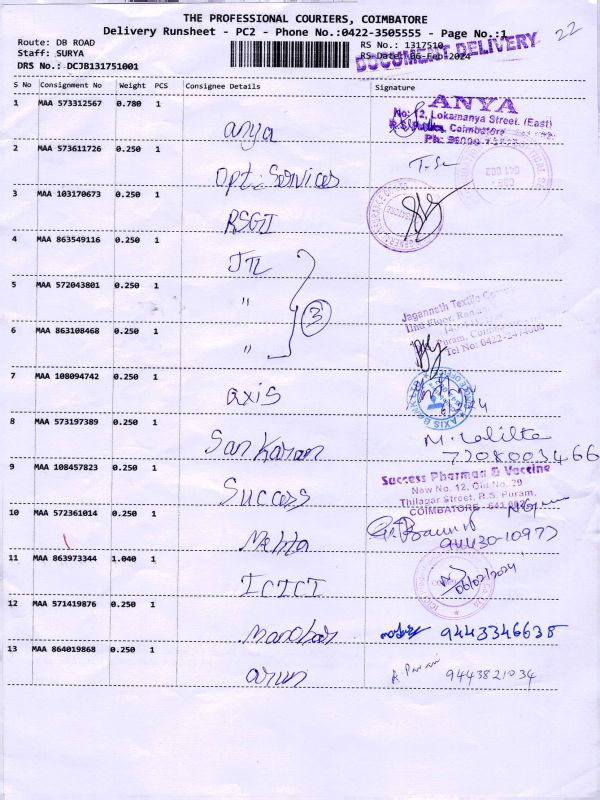 THE PROFESSIONAL COURIERS, COIMBATORE
Delivery Runsheet - PC2 - Phone No.:0422-3505555 - Page No.:1
22
Route: DB ROAD
RS No.: 1317510
Staff: SURYA
RS Date: 06-Feb-2024
DOCUMENT DELIVERY
DRS No.: DCJB131751001
S No Consignment No Weight PCS Consignee Details Signature
1 MAA 573312567 0.780 1 anya
ANYA
No: 12, Lokamanya Street, (East)
Coimbatore
2 MAA 573611726 0.250 1 Opti Services
3 MAA 103170673 0.250 1 RSGI
4 MAA 863549116 0.250 1 JTL
5 MAA 572043801 0.250 1 "
3
Jagannath Textile
6 MAA 863108468 0.250 1 "
Tel No: 0422-2474000
7 MAA 108094742 0.250 1 axis
AXIS BANK
8 MAA 573197389 0.250 1 Sankaran
M. Lalitta
7208003466
9 MAA 108457823 0.250 1 Success
Success Pharma & Vaccine
New No. 12, Old No. 29
Thilagar Street, R.S. Puram,
COIMBATORE
10 MAA 572361014 0.250 1 Mehta
94430-10977
11 MAA 863973344 1.040 1 ICICI
06/02/2024
12 MAA 571419876 0.250 1 Manohar
9443346635
13 MAA 864019868 0.250 1 arun
9443821034